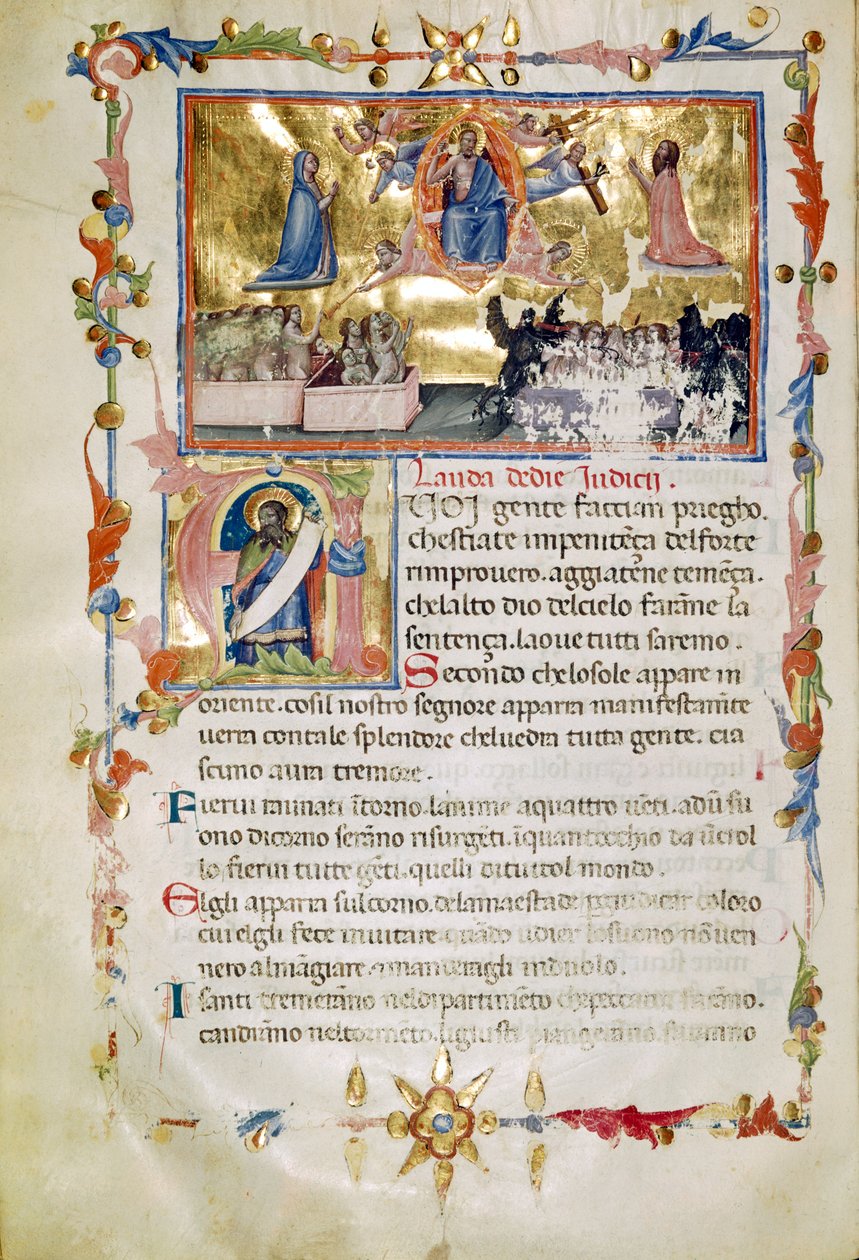 Lauda dedie Iudicij .
VOI gente faccian priegho .
chestiate impenitēça delforte
rimprovero . aggiatene temēça .
chelalto dio delcielo farāne la
sentença . laove tutti saremo .
Secōndo chelosole appare in
oriente . cosil nostro segnore apparra manifestamīte
verra contale splendore chelvedra tutta gente . cia
scuno avra tremore .
Fiervi raunati ītorno . lanime aquattro vēti . adūsu
ono dicorno serāno risurgēti . īquan
lo fiervi tutte gēti . quelli dituttol mondo .
Elgli apparra sulcorno . delamaestade coloro
cui elgli fece invitare . quādo udier losuono nōvēn
nero almāgiare .
I santi tremerāno neldipartimēto
candrāno neltormēto . ligiusti piangerāno .